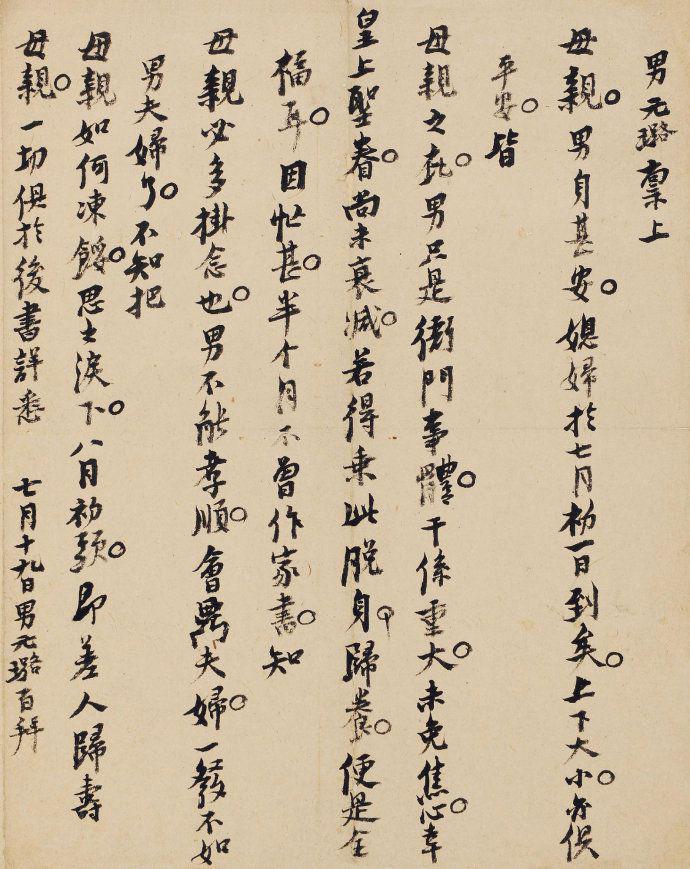 男元璐稟上
母親。男身甚安。媳婦於七月初一日到矣。上下大小。亦俱
平安。皆
母親之庇。男只是衙門事體。干係重大。未免焦心。幸
皇上聖眷。尚未衰減。若得乘此脫身。歸養。便是全
福耳。因忙甚。半个月不曾作家書。知
母親必多掛念也。男不能孝順。會禺夫婦。一發不如
男夫婦了。不知把
母親如何凍餒。思之淚下。八月初頭。即差人歸壽
母親。一切俱於後書詳悉 七月十九日男元璐百拜